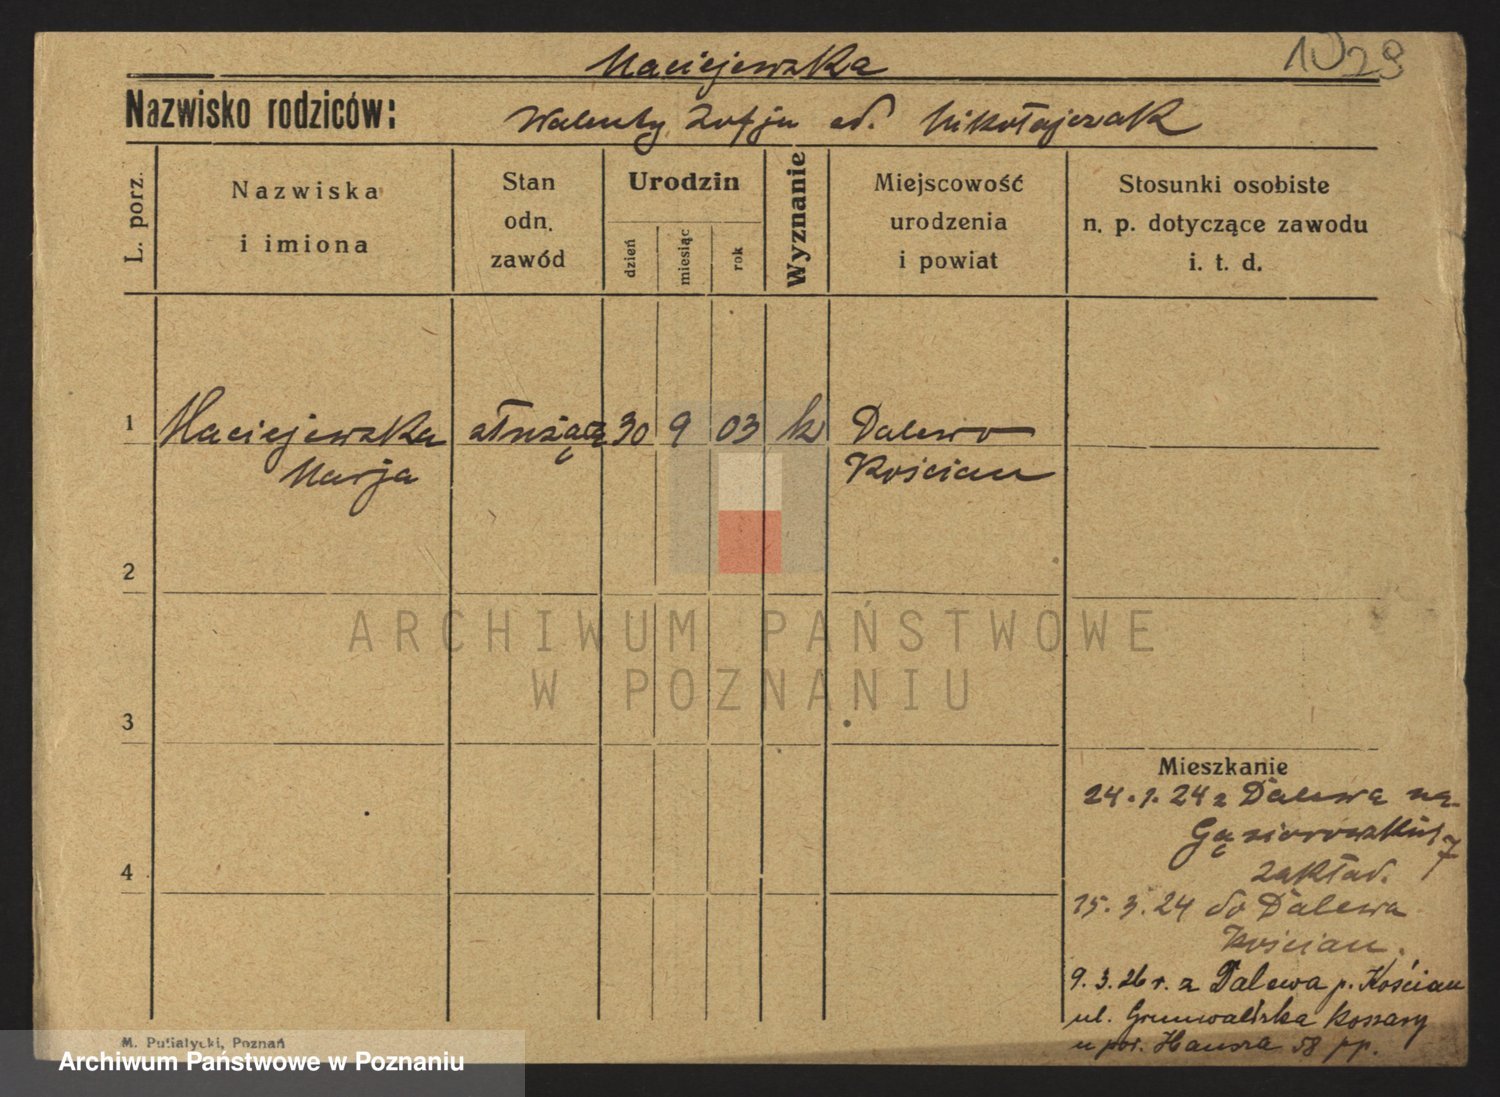 1929
Maciejewska
Nazwisko rodziców: Walenty Zofja od. Mikołajczak
L. porz.
Nazwiska
i imiona
Stan
odn.
zawód
Urodzin
dzień
miesiąc
rok
Wyznanie
Miejscowość
urodzenia
i powiat
Stosunki osobiste
n. p. dotyczące zawodu
i. t. d.
1 Maciejewska służąca 30 9 03 k Dalewo
Marja Kościan
2
ARCHIWUM PAŃSTWOWE
W POZNANIU
3
Mieszkanie
24.1.24 z Dalewa na
Gąsiorowskich 7
zakład.
4
15.3.24 do Dalewa
Kościan.
9.3.26 r. z Dalewa p. Kościan
ul. Grunwaldzka Koszary
u por. Hausza 58 pp.
M. Putiatycki, Poznań
Archiwum Państwowe w Poznaniu